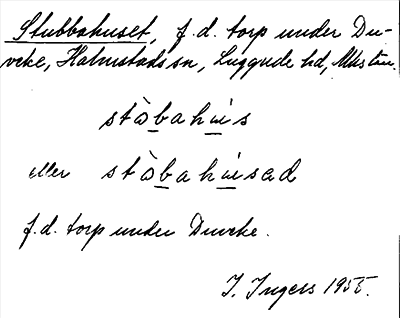 Stubbahuset, f.d. torp under Du-
veke, Halmstads sn, Luggude hd, Mhs län.
stòbahús
eller stòbahúsad
f.d. torp under Duveke.
I. Ingers 1955.